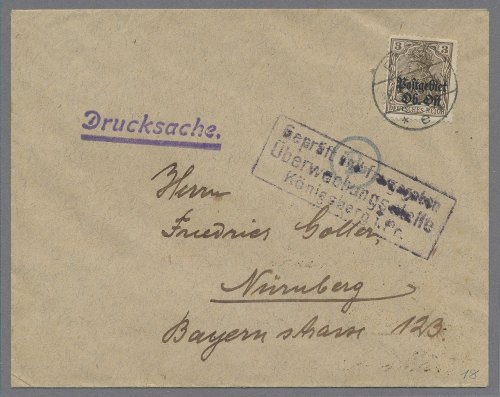 3 3
Postgebiet
Ob. Ost
DEUTSCHES REICH
* e
Drucksache.
Geprüft und freigegeben
Überwachungsstelle
Königsberg i. Pr.
Herrn
Friedrich Goller,
Nürnberg
Bayernstrasse 123.
18